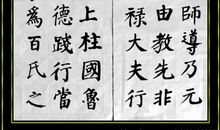 師導乃元
由教先非
禄大夫行
上柱國魯
德踐行當
爲百氏之